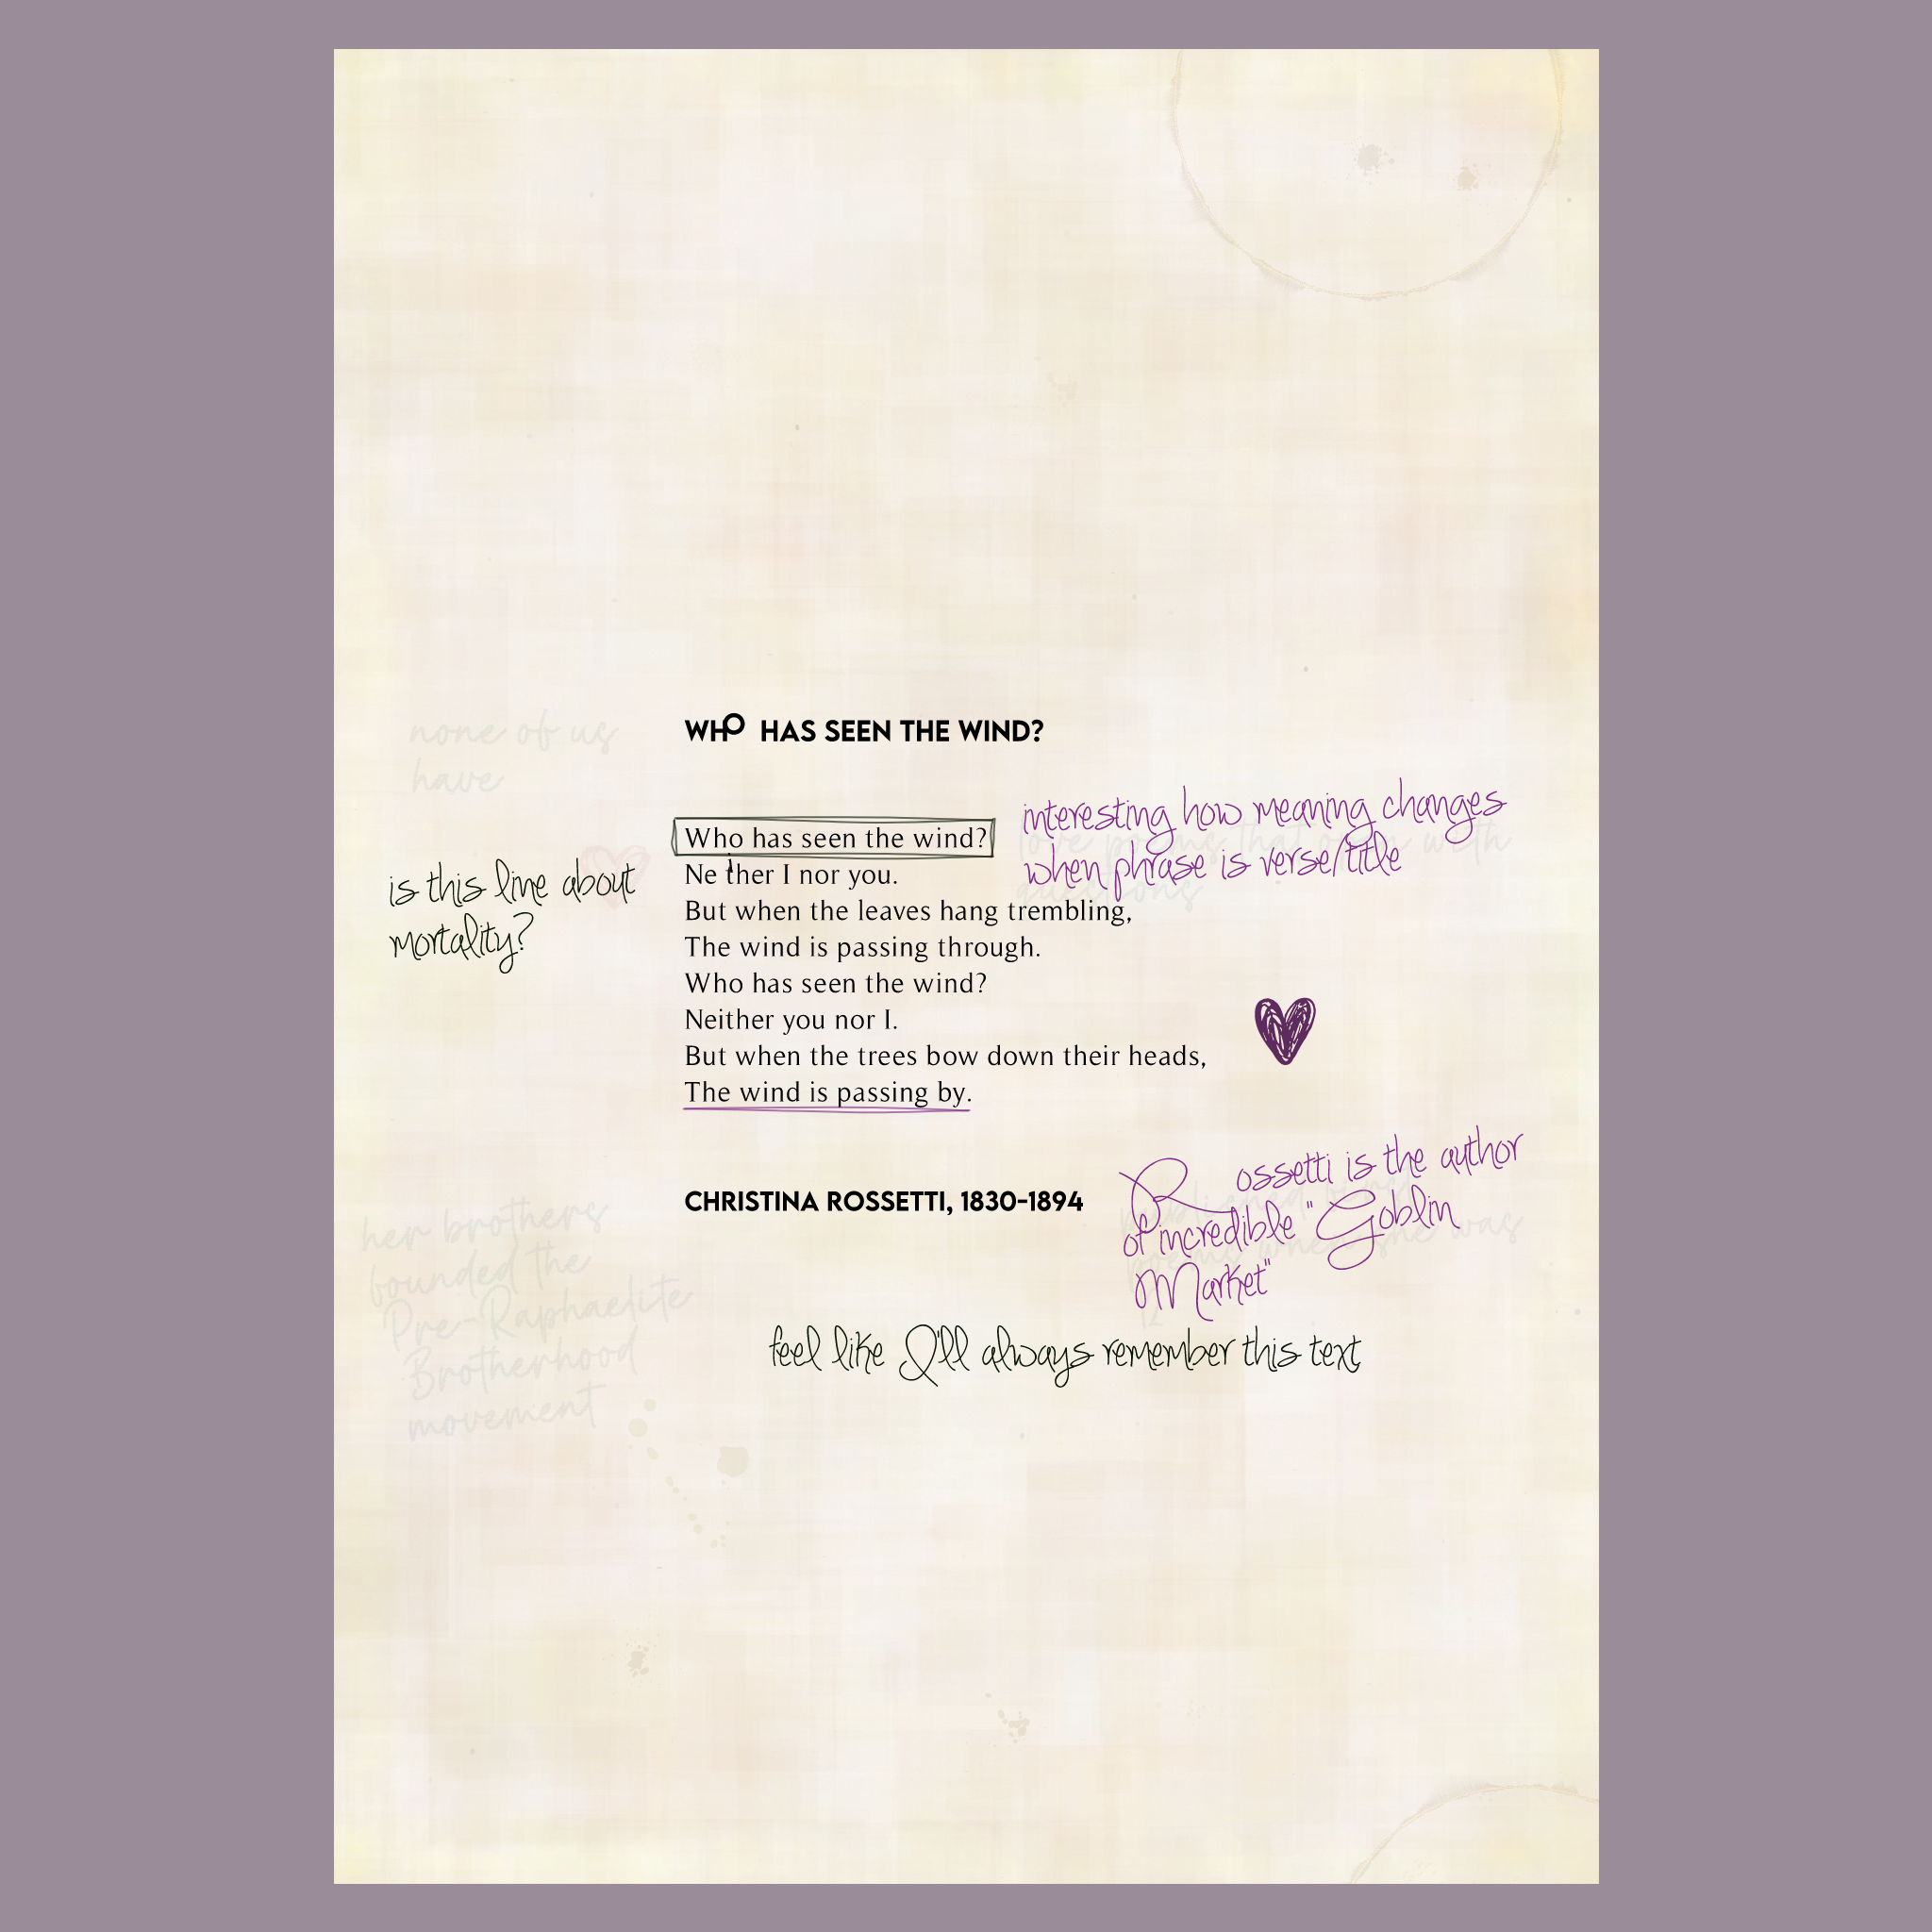 none of us
have
WHO HAS SEEN THE WIND?
Who has seen the wind?
interesting how meaning changes
when phrase is verse/title
love poems that open with
questions
is this line about
mortality?
Neither I nor you.
But when the leaves hang trembling,
The wind is passing through.
Who has seen the wind?
Neither you nor I.
But when the trees bow down their heads,
The wind is passing by.
CHRISTINA ROSSETTI, 1830-1894
Rossetti is the author
of incredible "Goblin
Market"
poems when she was
12
her brothers
founded the
Pre-Raphaelite
Brotherhood
movement
feel like I'll always remember this text